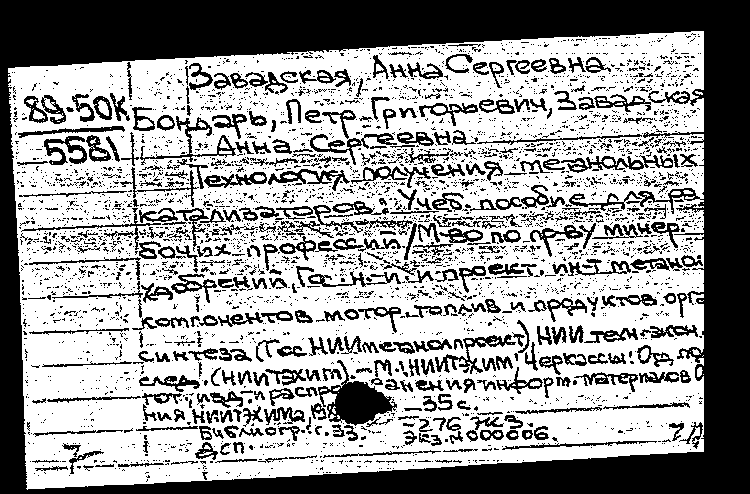 Завадская, Анна Сергеевна
89-50К
5581
Бондарь, Петр Григорьевич, Завадская
Анна Сергеевна
Технология получения метанольных
катализаторов: Учеб. пособие для ра-
бочих профессий / М-во по пр-ву минер.
удобрений, Гос. н.-и. и проект. ин-т метано
компонентов мотор. топлив и продуктов орга
синтеза (ГосНИИметанолпроект), НИИ техн.-экон.
след. (НИИТЭХИМ). - М.: НИИТЭХИМ; Черкассы: Отд. по
гот., изд. и распространения информ. материалов О
ния НИИТЭХИМа, 198 - 35 с.
Библиогр.: с. 33. - 276 экз.
Дсп. Экз. N 000006.